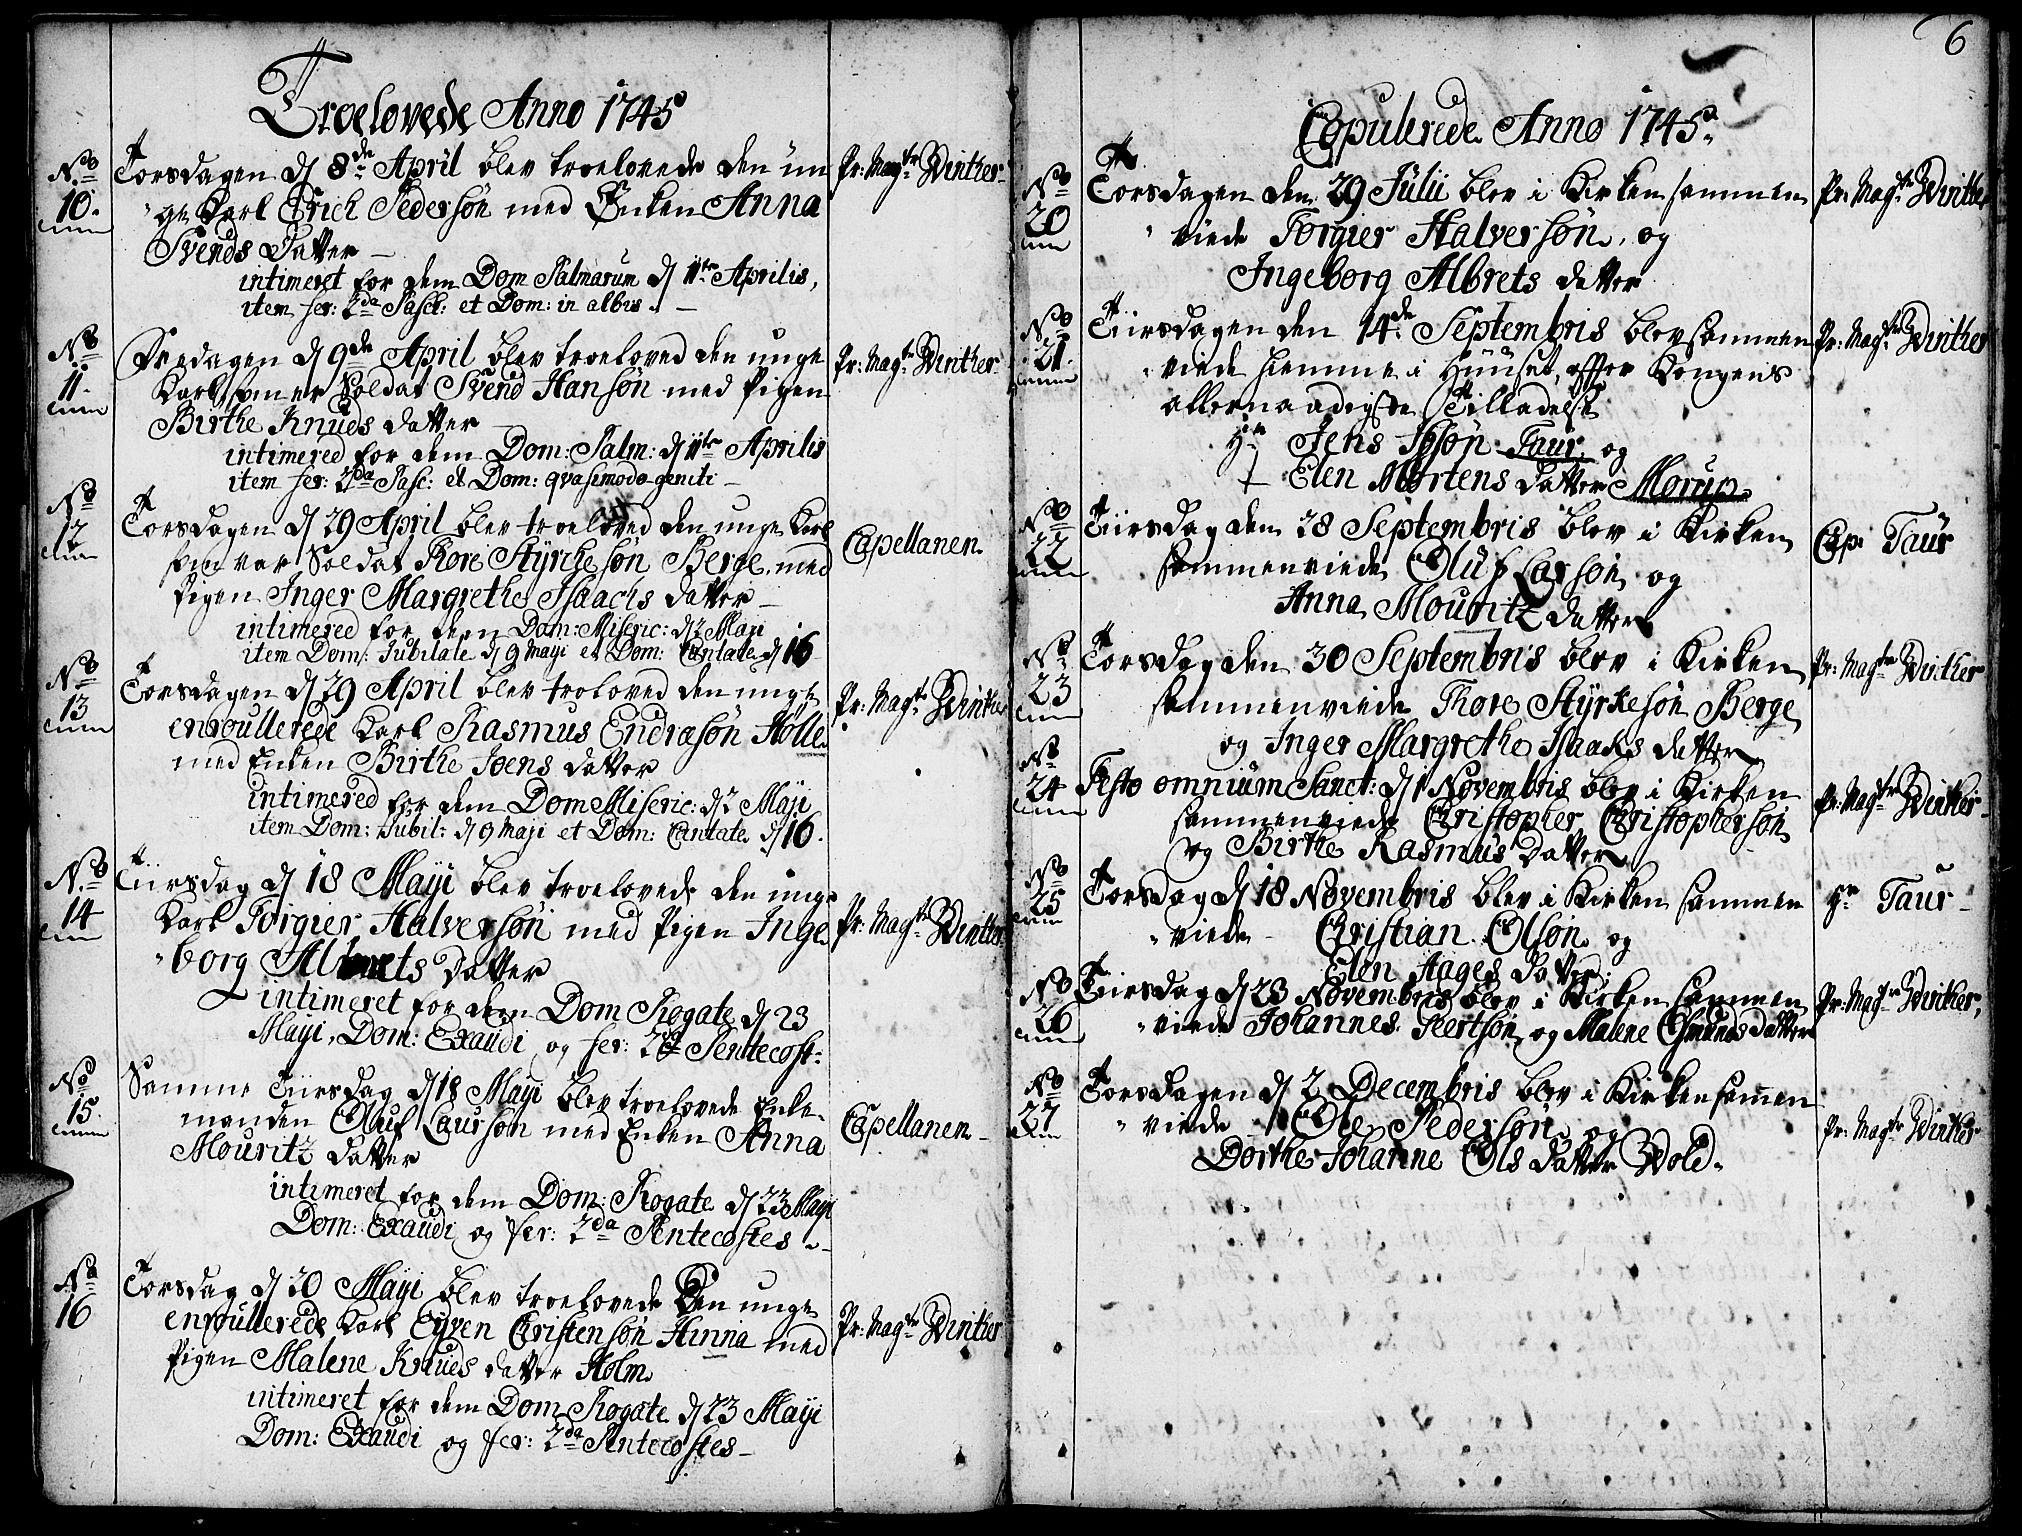 Troelovede Anno 1745
No 10. Torsdagen d/ 8de April blev troelovede den un Pr: Magtr Winther
ge Karl Erich Pedersøn med Enken Anna
Svends Datter
intimeret for dem Dom Palmarum d/ 11te Aprilis,
item fer: 2da Pasch: et Dom: in albis.
No 11. Fredagen d/ 9de April blev troeloved den unge Pr: Magtr Winther
Karl som er Soldat Svend Hansøn med Pigen
Birthe Knuds datter
intimered for dem Dom: Palm: d/ 11te Aprilis
item fer: 2da Pasc: et Dom: qvasimodogeniti
No 12 Torsdagen d/ 29 April blev troeloved den unge Karl Capellanen
som var Soldat Tore Styrckesøn Berge, med
Pigen Inger Margrethe Isaachs datter
intimered for dem Dom: Miseric: d/ 2 Maji
item Dom: Jubilate d/ 9 Mayi et Dom: Cantate d/ 16
No 13 Torsdagen d/ 29 April blev troloved den unge Pr: Magtr Winther
enroullerede Karl Rasmus Endrasøn Holle
med Enken Birthe Joens datter
intimered for dem Dom Miseric: d/ 2 Maji
item Dom: Jubil: d/ 9 Maji et Dom: Cantate d/ 16.
No. 14 Tiirsdag d/ 18 Mayi blev troelovede den unge Pr: Magtr Winther
Karl Torgier Halversøn med Pigen Inge
borg Albrets Datter
intimeret for dem Dom Rogate d/ 23
Mayi, Dom: Exaudi og fer: 2da Pentecost:
No 15. Samme Tiirsdag d/ 18 Mayi blev troelovede Enke
manden Oluf Laursøn med Enken Anna Capellanen
Mouritz datter
intimeret for dem Dom: Rogate d/ 23 Mayi
Dom: Exaudi og fer: 2da Pentecostes
No 16 Torsdag d/ 20 Mayi blev troelovede Den unge
enroullerede Karl Eyven Christensøn Hinna med Pr: Magtr Winther
Pigen Malene Knuds datter Holm
intimeret for dem Dom Rogate d/ 23 Mayi
Dom: Exaudi og fer: 2da Pentecostes
6
Copulerede Anno 1745.
No 20 Torsdagen den 29 Julii blev i Kirken sammen Pr: Magtr Winther
viede Torgier Halversøn, og
Ingeborg Albrets datter
No 21. Tiirsdagen den 14de Septembris blev sammen Pr: Magtr Winther
viede hiemme i Huuset, effter Kongens
allernaadigste Tilladelse
Hr Jens Ibsøn Taur og
Elen Mortens datter Morup
No 22 Tiirsdag den 28 Septembris blev i Kirken Cap: Taur
sammenviede Oluf Larsøn og
Anna Mouritz datter
No 23 Torsdag den 30 Septembris blev i Kirken Pr: Magtr Winther
sammenviede Tore Styrkesøn Berge
og Inger Margrethe Isaaks datter
No 24 Festo omnium Sanct: d/ 1 Novembris blev i Kirken Pr: Magtr Winther
sammenviede Christopher Christophersøn
og Birthe Rasmus Datter
No 25 Torsdag d/ 18 Novembris blev i Kirken sammen Hr Taur
viede Christian Olsøn og
Elen Aages datter
No 26 Tiirsdag d/ 23 Novembris blev i Kirken sammen Pr: Magtr Winther,
viede Johannes Peertsøn og Malene Osmunds datter
No 27 Torsdagen d/ 2 Decembris blev i Kirken sammen
viede Ole Pedersøn og Pr: Magtr Winther
Dorthe Johanne Ols datter Wold